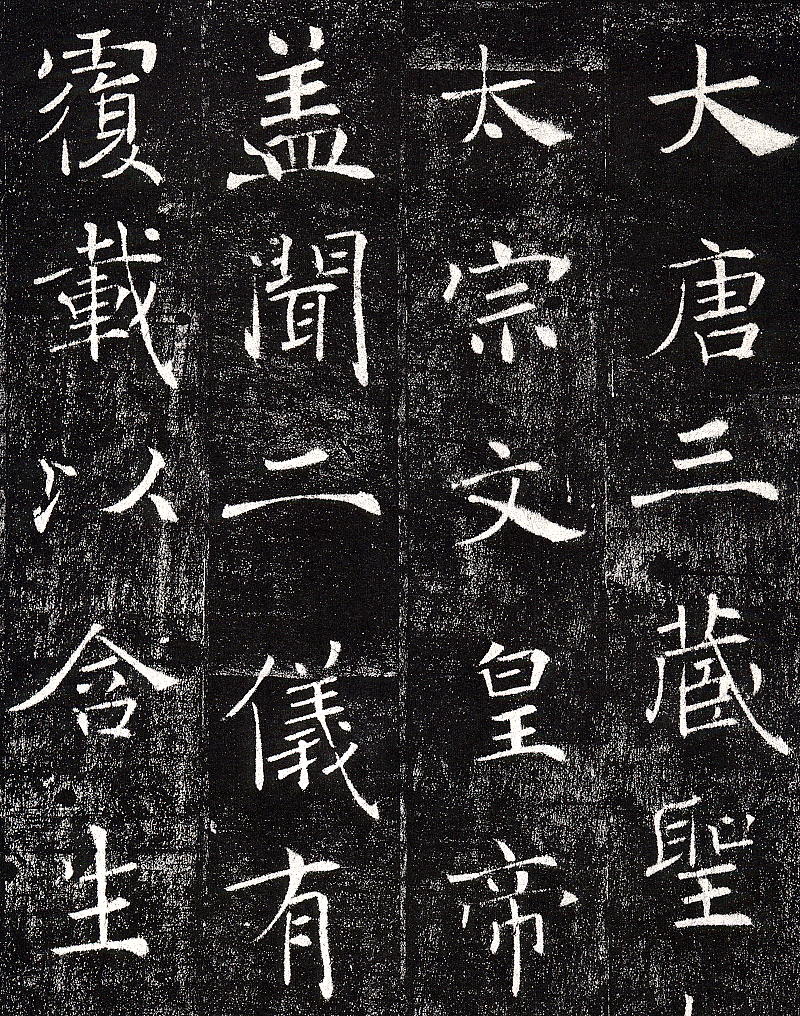 大唐三藏聖
太宗文皇帝
盖聞二儀有
覆載以含生